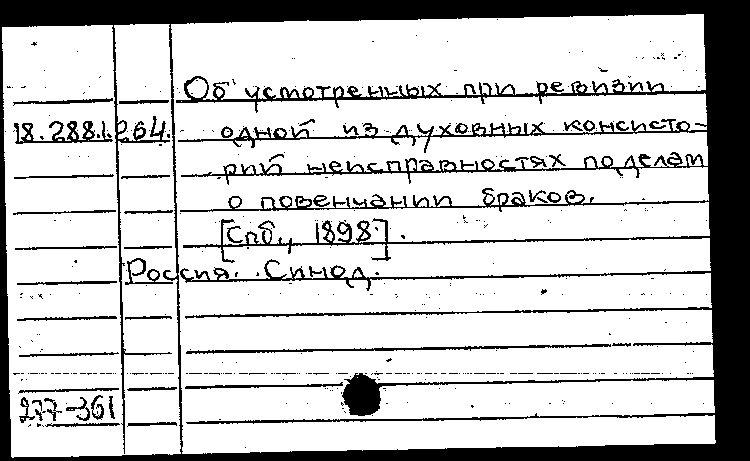 Об усмотренных при ревизии
18.288.1.264. одной из духовных консисто-
рий неисправностях по делам
о повенчании браков.
[Спб., 1898.].
Россия. Синод.
277-361